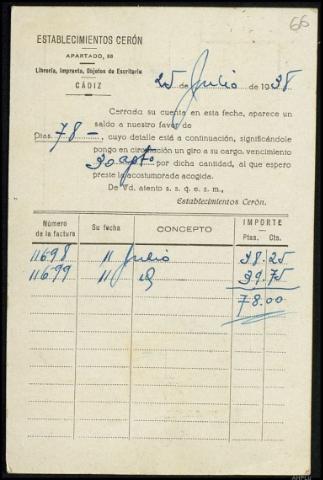 66
ESTABLECIMIENTOS CERÓN
APARTADO, 38
Librería, Imprenta, Objetos de Escritorio
CÁDIZ
25 de Julio de 1938.
Cerrada su cuenta en esta fecha, aparece un
saldo a nuestro favor de
Ptas. 78 -, cuyo detalle está a continuación, significándole
pongo en circulación un giro a su cargo, vencimiento
30 agpto por dicha cantidad, al que espero
preste la acostumbrada acogida.
De Vd. atento s. s. q. e. s. m.,
Establecimientos Cerón.
Número de la factura Su fecha CONCEPTO IMPORTE
Ptas. Cts.
11698 11 Julio 38.25
11699 11 id 39.75
78.00